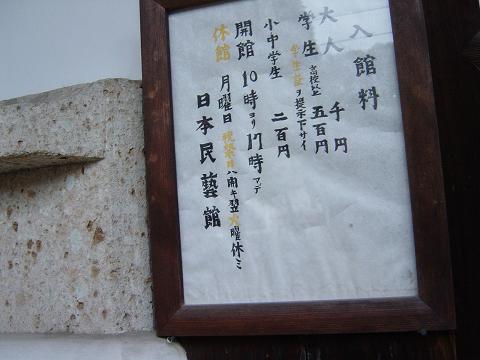 入館料
大人 千円
学生 高校以上 五百円
学生証ヲ提示下サイ
小中学生 二百円
開館 10時ヨリ17時マデ
休館 月曜日 祝祭日ハ開キ翌火曜休ミ
日本民藝館